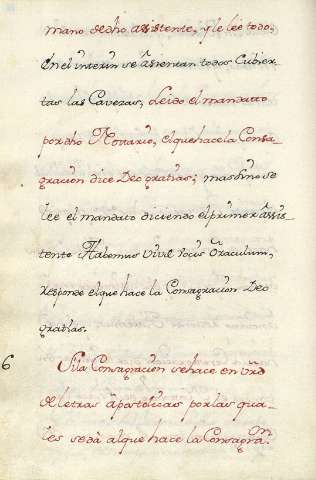 mano de dho assistente, y le leè todo.
En el interin se assientan todos Cubier-
tas las Cavezas, Leido el mandatto
por dho Nottario, el que hace la Consa-
gracion dice Deo gratias; mas si no se
leè el mandato diciendo el primer Assis
tente Habemus vivæ vocis Oraculum,
responde el que hace la Consagracion Deo
gratias.
6 Si la Consagracion se hace en
de letras Apostolicas por las qua-
les se dà al que hace la Consagraon.